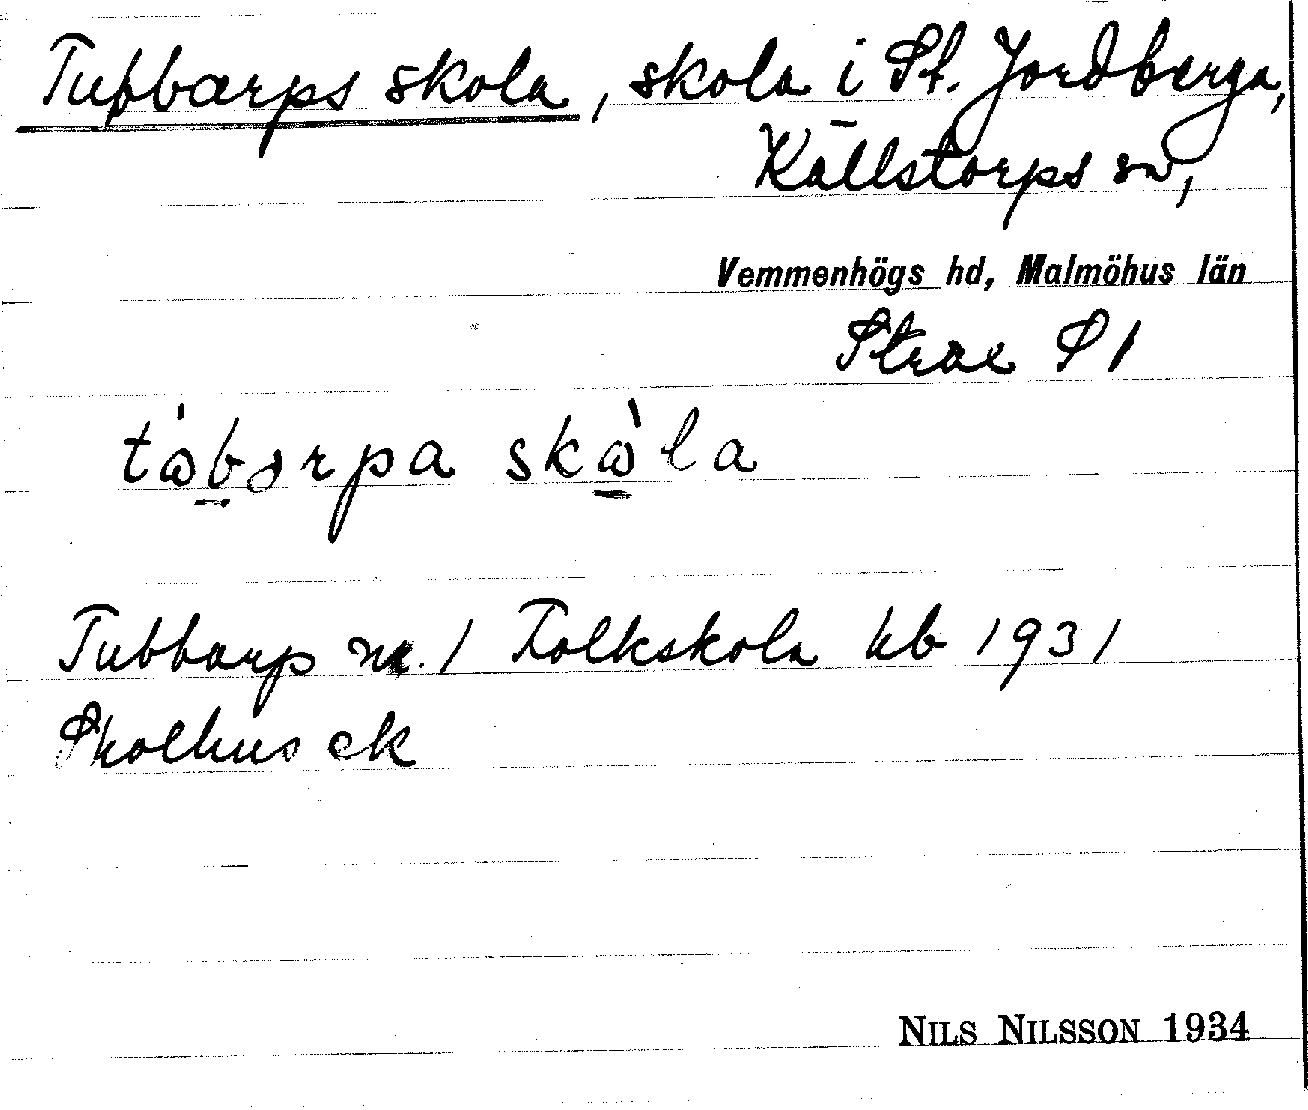 Tubbarps skola, skola i St. Jordberga,
Källstorps sn,
Vemmenhögs hd, Malmöhus län
S1
skola
Tubbarp nr. 1 Folkskola kb 1931
Skolhus ek
NILS NILSSON 1934